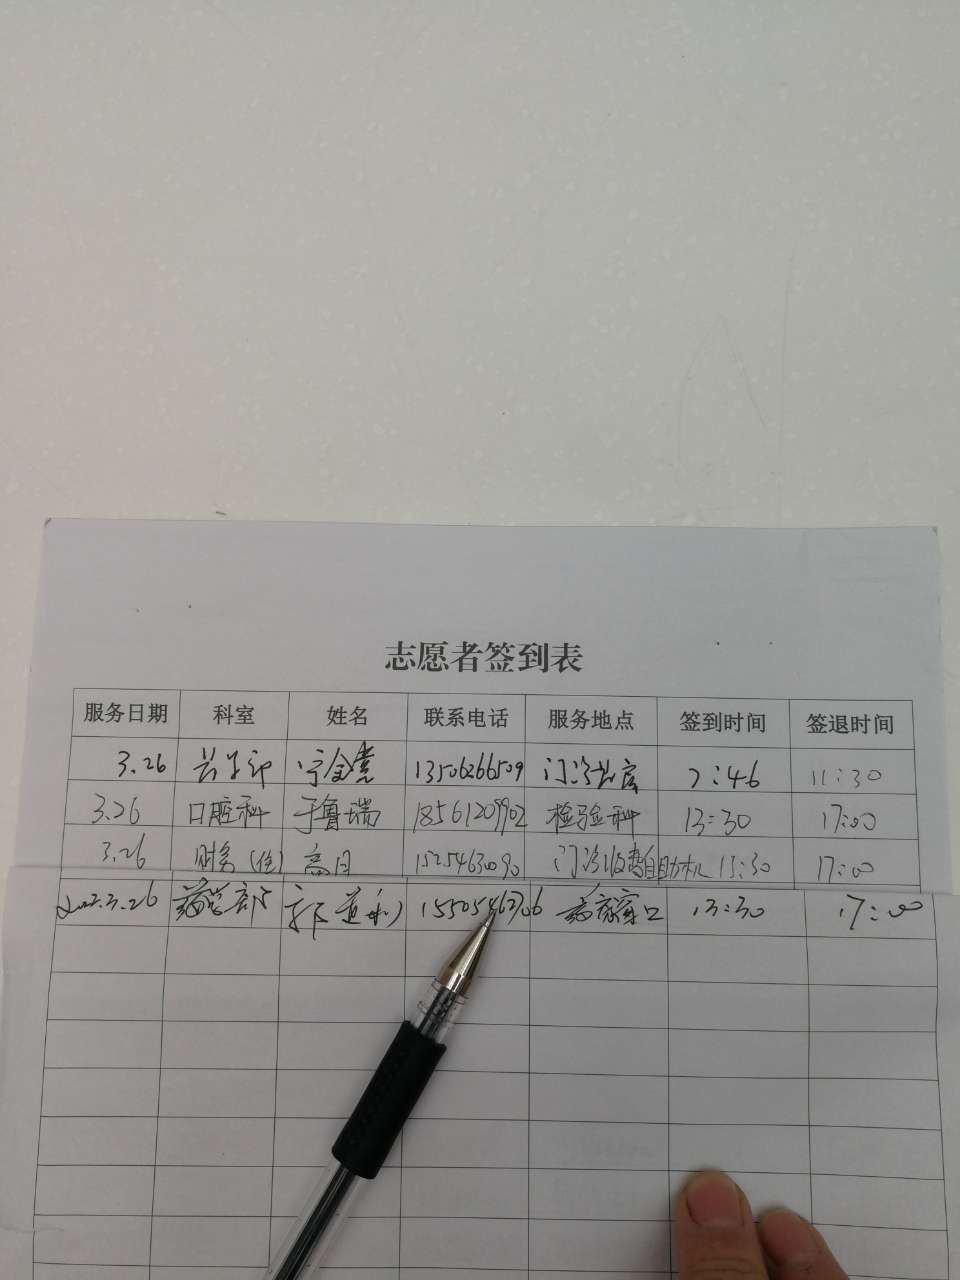 志愿者签到表
服务日期 科室 姓名 联系电话 服务地点 签到时间 签退时间
3.26 13506266509 7:46 11:30
3.26 口腔科 于鲁瑞 18561209902 检验科 13:30 17:00
3.26 财务(住) 高月 15254630090 门诊收费自助机 13:30 17:00
2022.3.26 药学部 郭道利 窗口 13:30 17:00